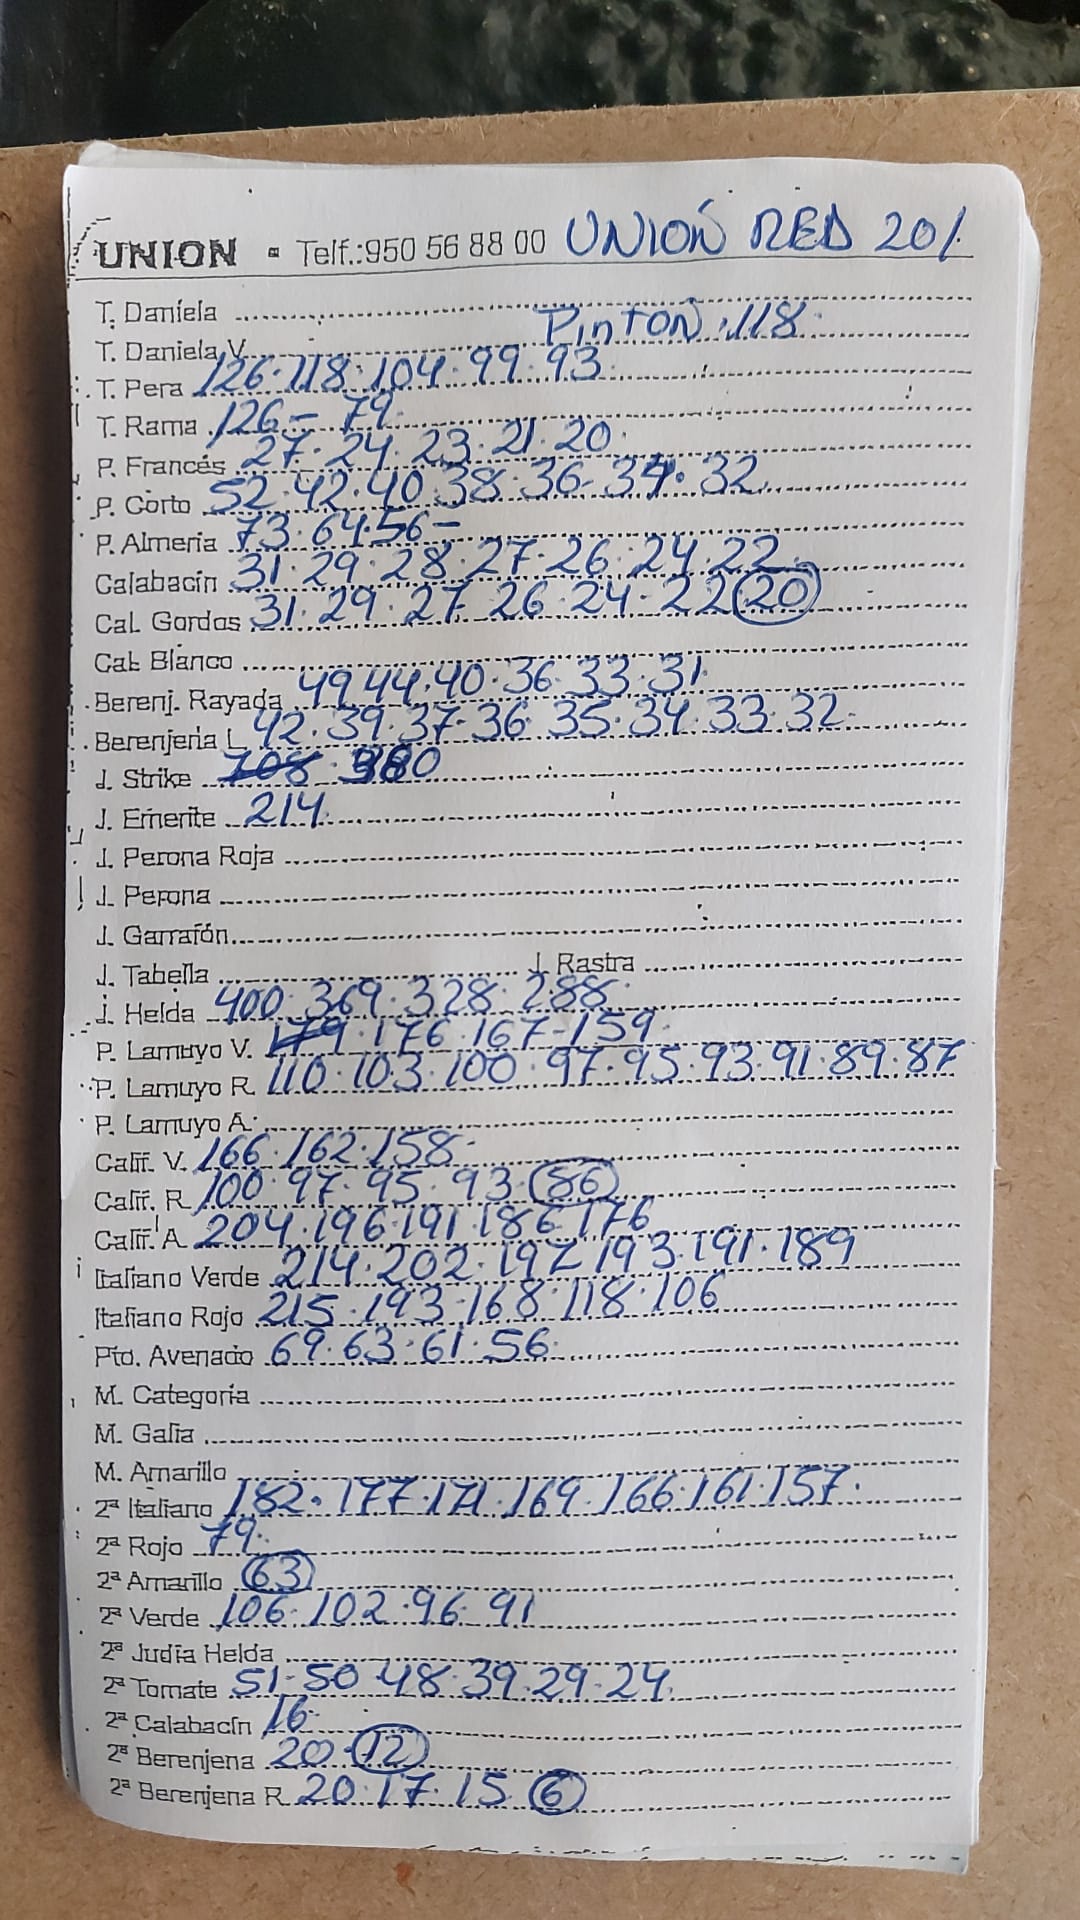 UNION - Telf.:950 56 88 00 UNIÓN RED 20/.
T. Daniela
T. Daniela V. PINTON 118
T. Pera 126.118.104.99.93
T. Rama 126- 79
P. Francés 27.24.23.21.20
P. Corto 52.42.40.38.36.34.32
P. Almeria 73.64.56-
Calabacín 31.29.28.27.26.24.22
Cal. Gordos 31.29.27.26.24.22 20
Cal. Blanco
Berenj. Rayada 49.44.40.36.33.31
Berenjena L. 42.39.37.36.35.34.33.32
J. Strike 708. 380
J. Emerite 214
J. Perona Roja
J. Perona
J. Garrafón
J. Tabella J. Rastra
J. Helda 400.369.328.288
P. Lamuyo V. 179.176.167-159
P. Lamuyo R. 110.103.100.97.95.93.91.89.87
P. Lamuyo A.
Calif. V. 166.162.158
Calif. R. 100.97.95.93.86
Calif. A. 204.196.191.186.176
Italiano Verde 214.202.197.193.191.189
Italiano Rojo 215.193-168.118.106
Pto. Avenado 69.63.61.56
M. Categoría
M. Galia
M. Amarillo
2ª Italiano 182.177.171.169.166.161.157
2ª Rojo 79
2ª Amarillo 63
2ª Verde 106.102.96.91
2ª Judía Helda
2ª Tomate 51-50.48.39.29.24
2ª Calabacín 16
2ª Berenjena 20.12
2ª Berenjena R. 20.17.15.6